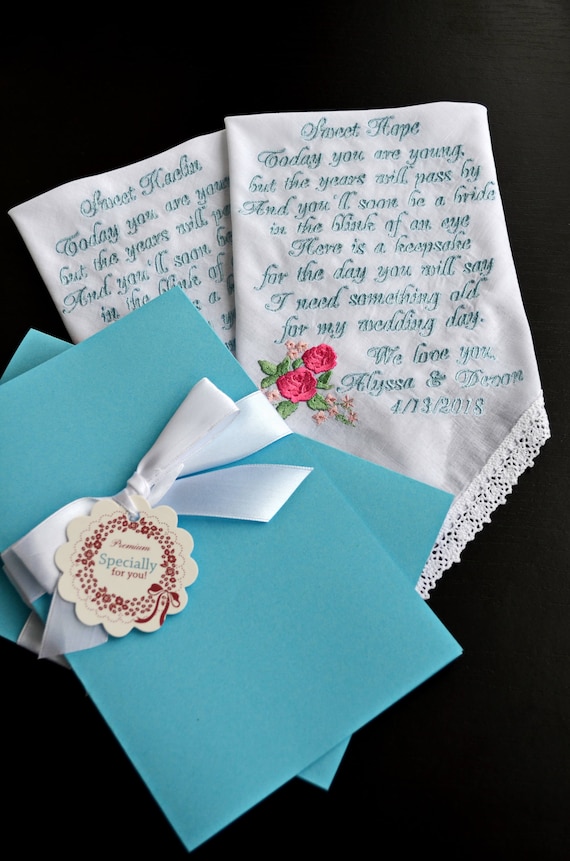 Sweet Kaelin
Today you are young
but the years will
And you'll soon be
in the blink of
Sweet Hope
Today you are young,
but the years will pass by
And you'll soon be a bride
in the blink of an eye
Here is a keepsake
for the day you will say
I need something old
for my wedding day.
We love you,
Alyssa & Devon
4/13/2018
Premium
Specially
for you!